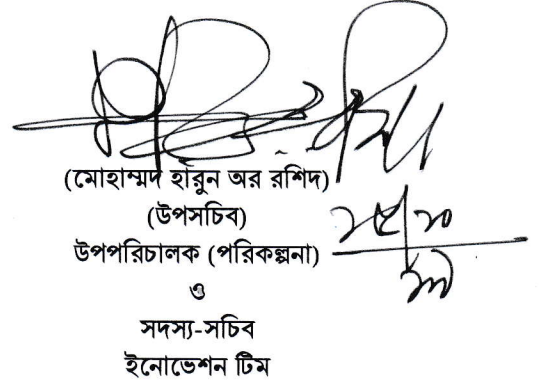 (মোহাম্মদ হারুন অর রশিদ)
(উপসচিব)
উপপরিচালক (পরিকল্পনা)
ও
সদস্য-সচিব
ইনোভেশন টিম